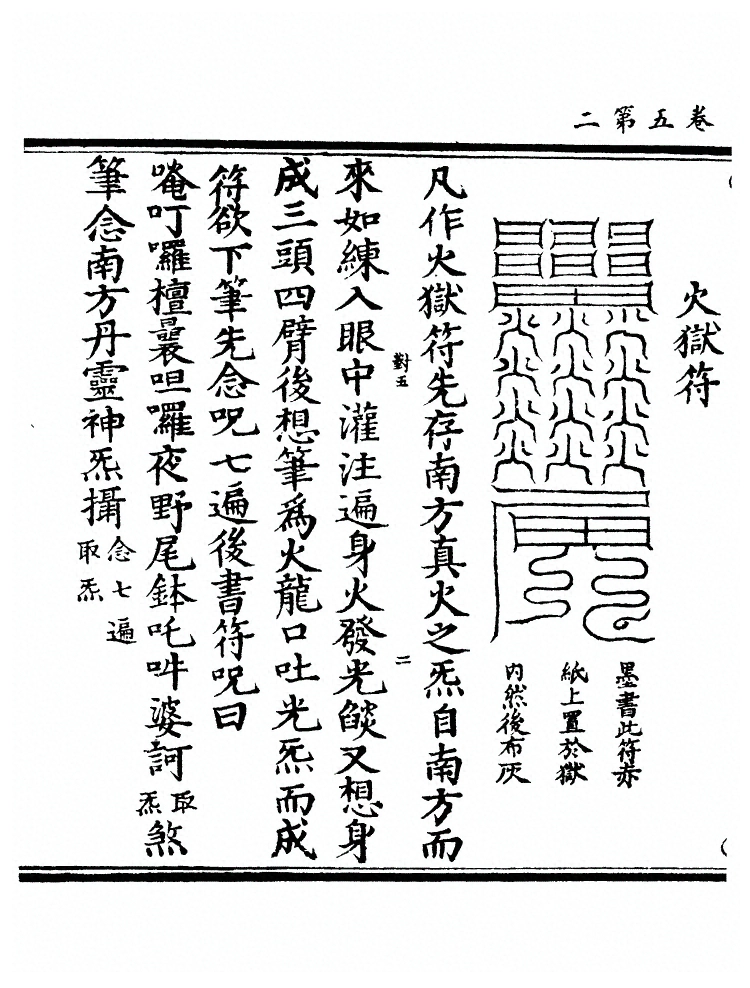 卷五第二
火獄符
墨書此符亦
紙上置於獄
內然後布灰
凡作火獄符先存南方真火之炁自南方而
來如練入眼中灌注遍身火發光燄又想身
對五
二
成三頭四臂後想筆為火龍口吐光炁而成
符欲下筆先念呪七遍後書符呪曰
唵叮囉檀曩呾囉夜野尾鉢吒吽婆訶取炁煞
筆念南方丹靈神炁攝念七遍取炁